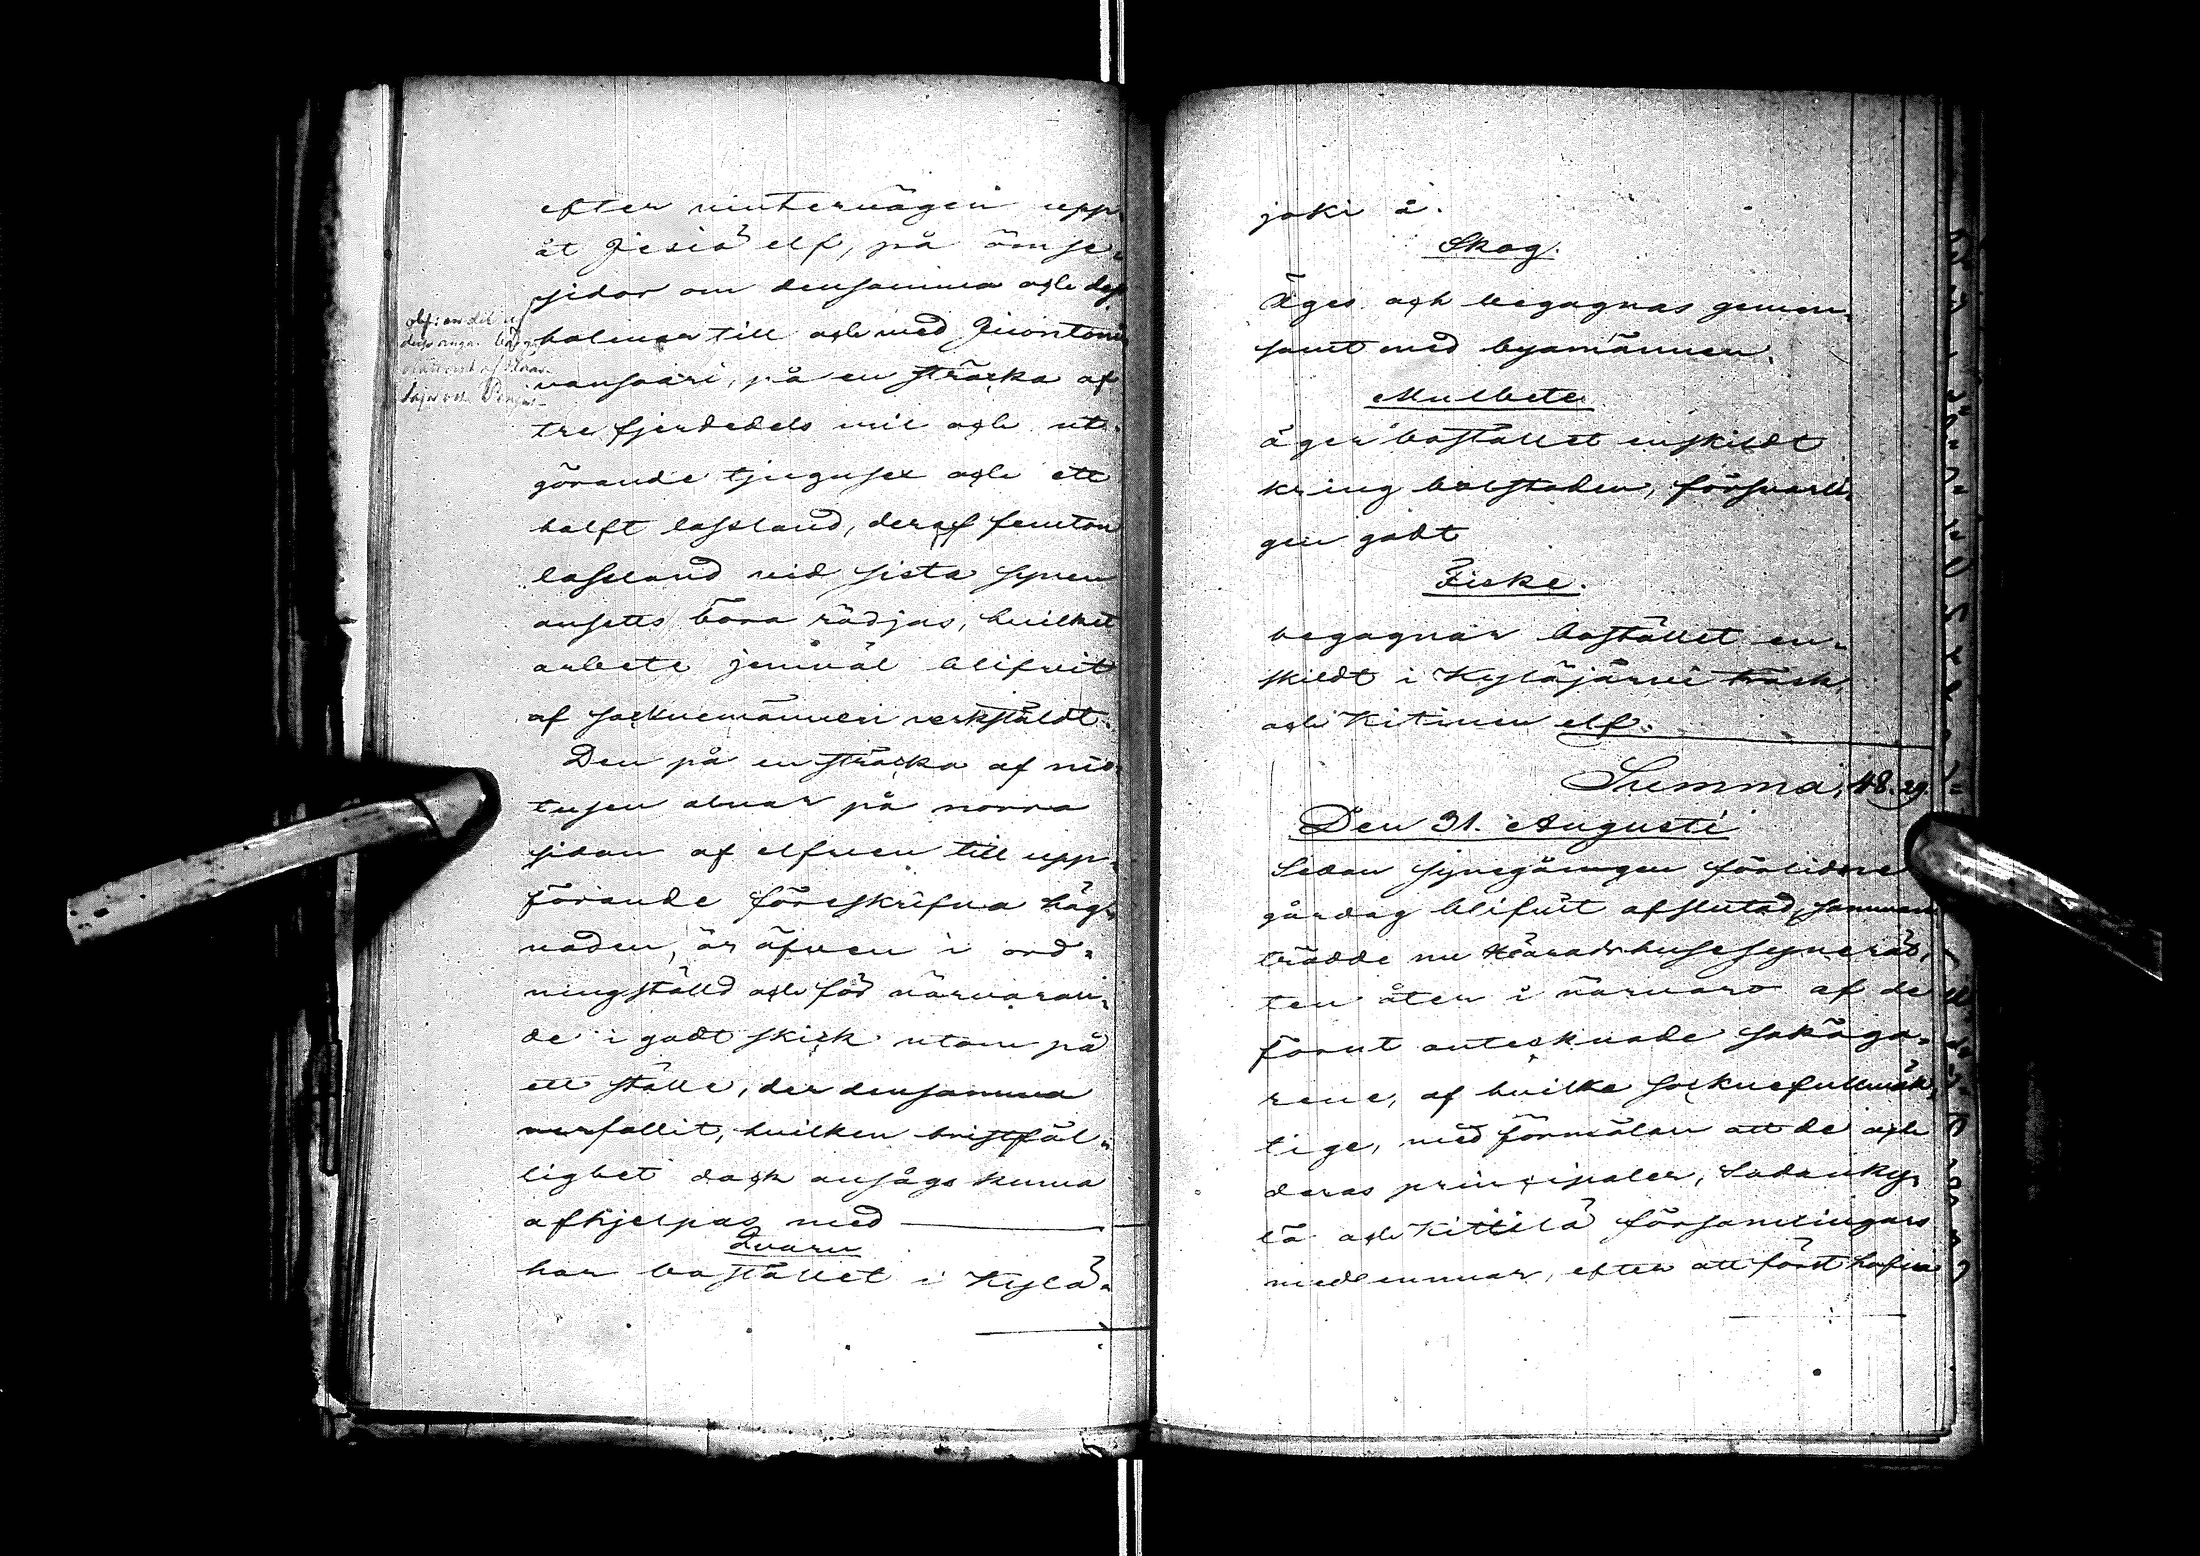 efter vintervägen upp-
åt Jesiö elf, på ömse-
sidor om densamma och dess
holmar till och med
vansaari, på en sträcka af
tre fjerdedels mil och ut-
görande tjugusex och ett
halft lassland, deraf femton
lassland vid sista synen
ansetts böra rödjas, hvilket
arbete jemväl blifvit
af socknemännen verkstäldt.
Den på en sträcka af nio-
tusen alnar på norra
sidan af elfven till upp-
förande föreskrifna häg-
naden, är äfven i ord-
ningställd och för närvaran-
de i godt skick utom på
ett ställe, der densamma
nerfallit, hvilken bristfäl-
lighet dock ansågs kunna
afhjelpas med
Qvarn
har bostället i Kylä-
joki å.
Skog.
Äges och begagnas gemen-
samt med byamännen.
Mulbete
äger bostället enskildt
kring bolstaden, försvarli-
gen godt
Fiske.
begagnar bostället en-
skildt i Kyläjärvi träsk,
och Kitinen elf.
Summa, 48. 29.
Den 31. Augusti
Sedan synegången förlidne
gårdag blifvit afslutad, samman-
trädde nu Häradshusesynerät-
ten åter i närvaro af de
förut antecknade sakäga-
rene, af hvilka socknefullmäk-
tige, med förmälan att de och
deras principaler, Sodanky-
lä och Kittilä församlingars
medlemmar, efter att först hafva